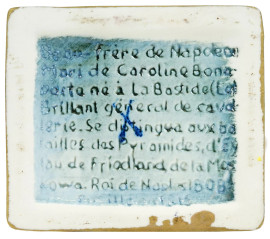 frère de Napoleon
Mari de Caroline Bona
parte né à La Bastide (Lot
Brillant général de caval
lerie. Se distingua aux ba
tailles des Pyramides, d'Ey
lau de Friedland, de la Mos
kowa. Roi de Naples 1808